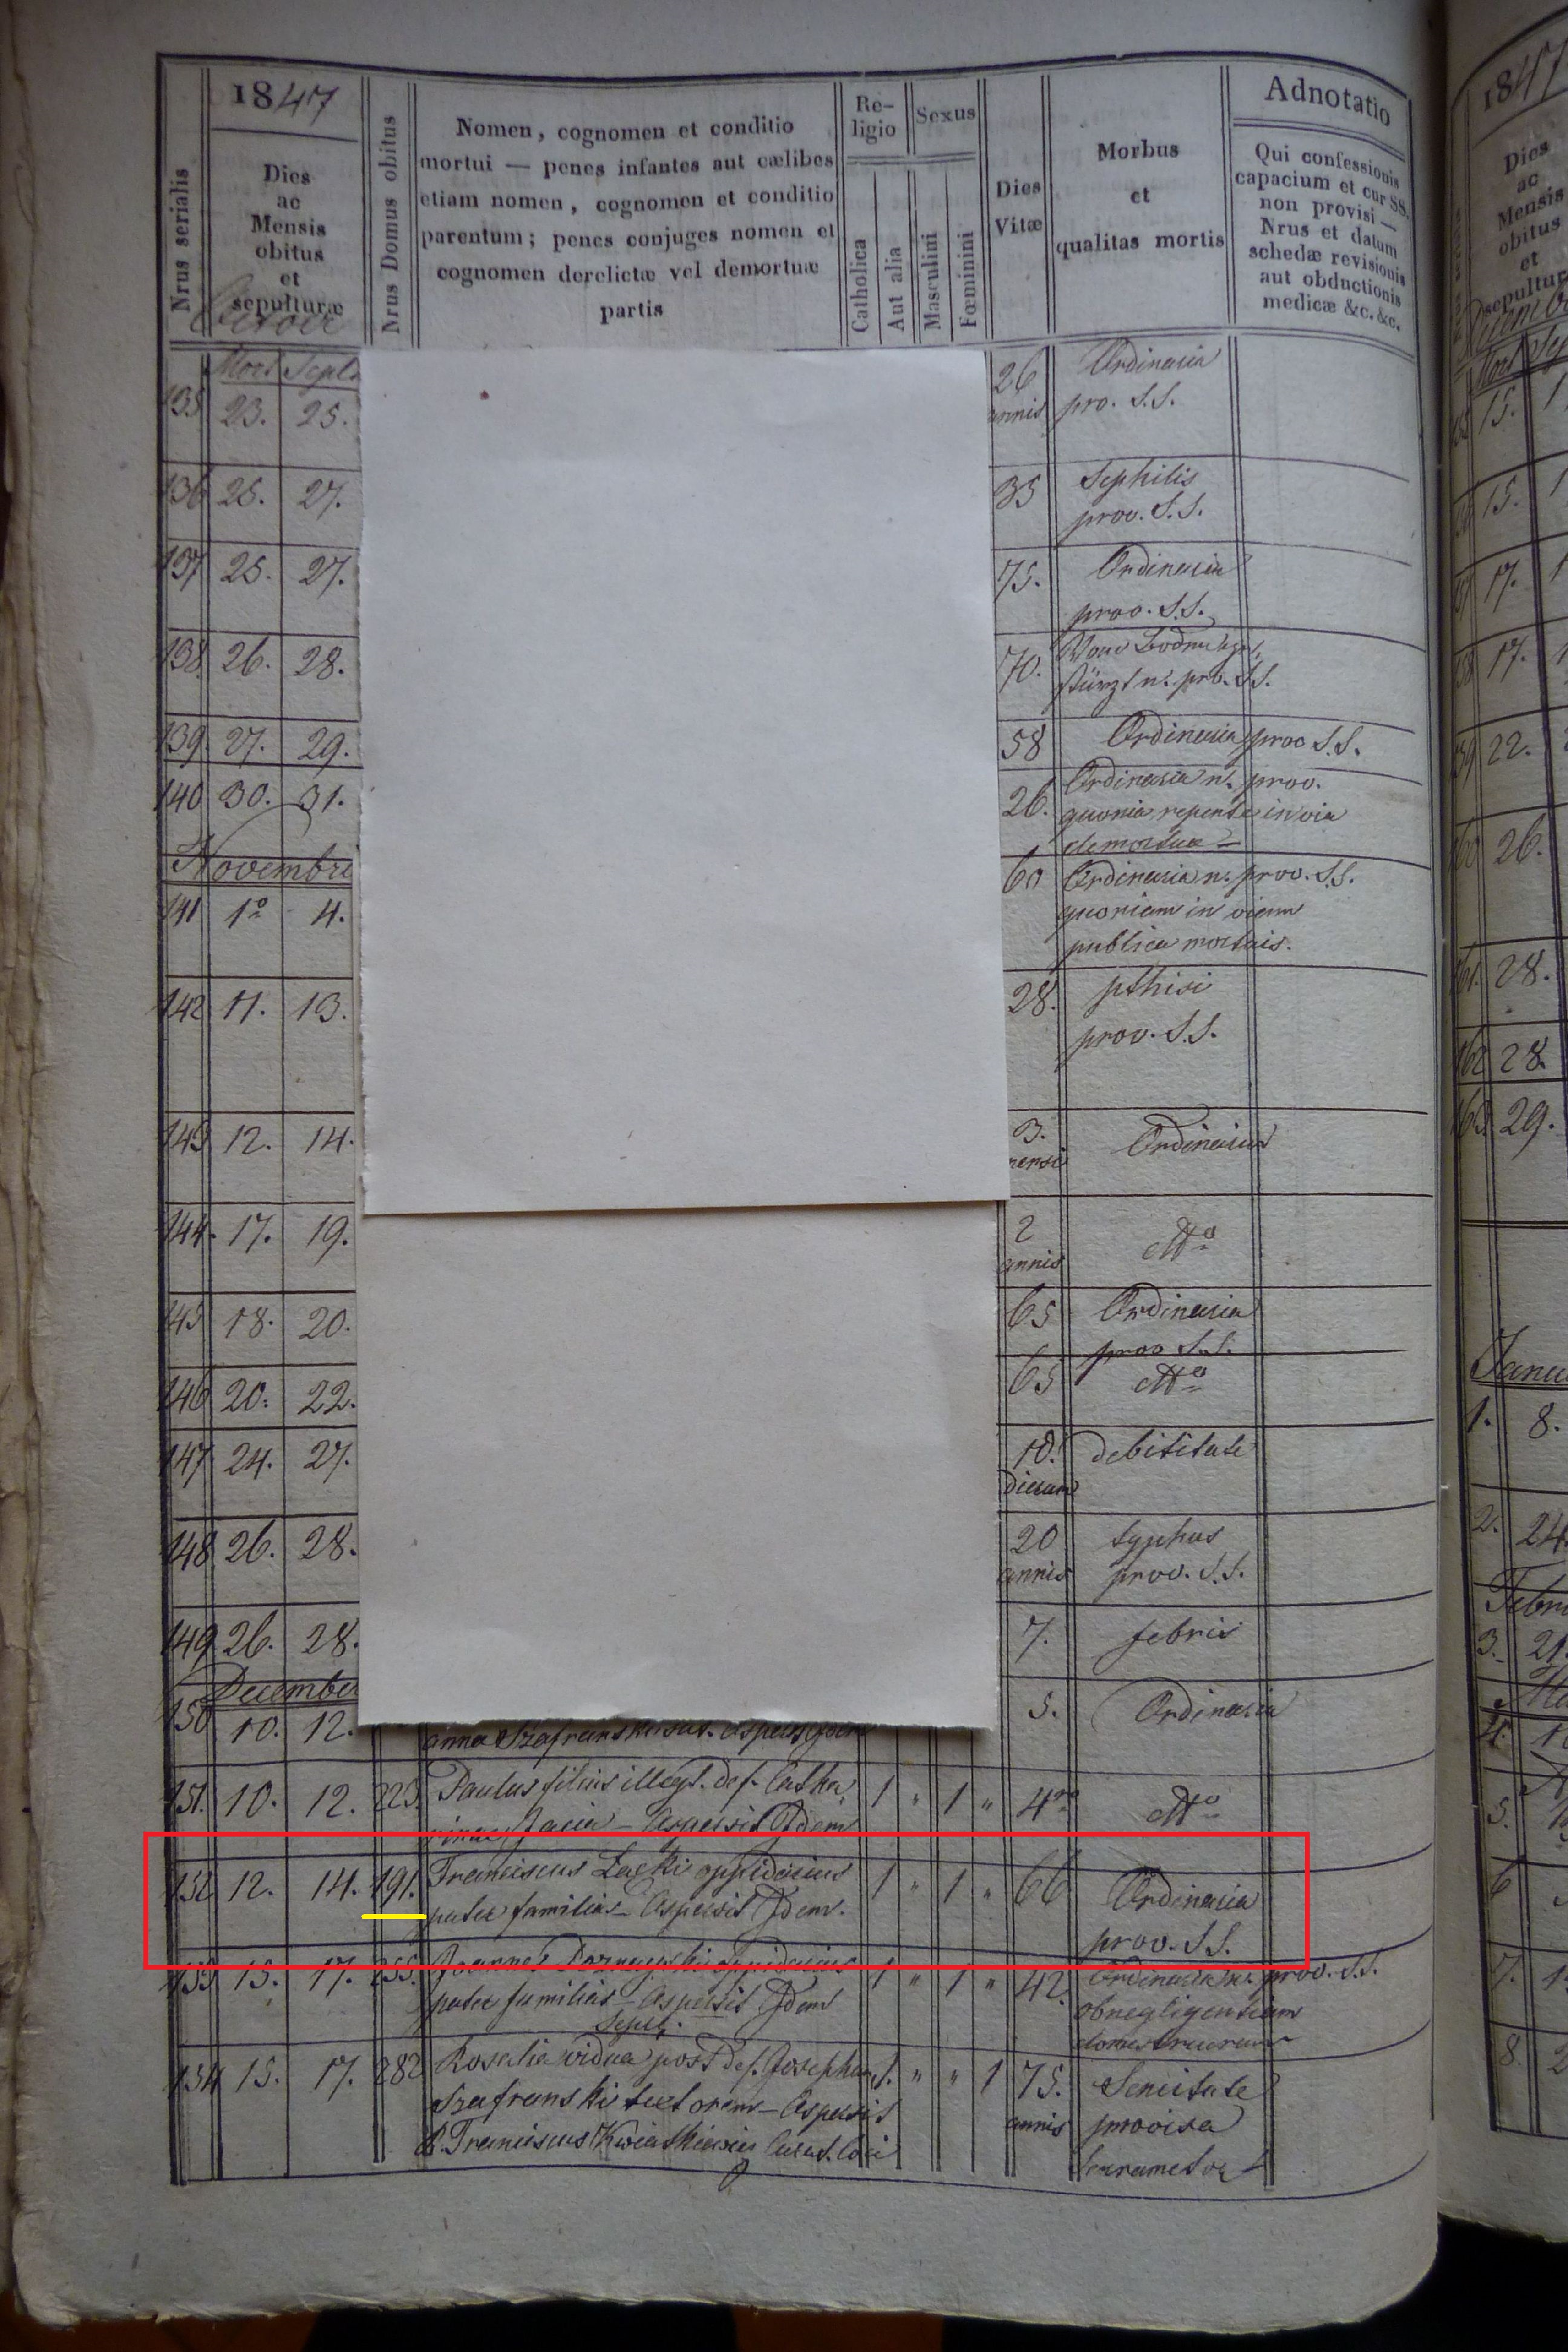 1847
Nrus serialis
Dies
ac
Mensis
obitus
et
sepulturæ
Nrus Domus obitus
Nomen, cognomen et conditio
mortui — penes infantes aut cælibes
etiam nomen, cognomen et conditio
parentum; penes conjuges nomen et
cognomen derelictæ vel demortuæ
partis
Re-
ligio
Catholica
Aut alia
Sexus
Masculini
Fœminini
Dies
Vitæ
Morbus
et
qualitas mortis
Adnotatio
Qui confessionis
capacium et cur SS.
non provisi —
Nrus et datum
schedæ revisionis
aut obductionis
medicæ &c. &c.
Mort Sepul
135 23. 25. 26 Ordinaria
annis pro. S.S.
136 25. 27. 35 Syphilis
prov. S.S.
137 25. 27. 75. Ordinaria
prov. S.S.
138. 26. 28. 70.
n. pro. S.S.
139. 27. 29. 58 Ordinaria prov S.S.
140 30. 31. 26. Ordinaria n. prov.
quonia repente in via
demortua
Novembri
141 1º 4. 60 Ordinaria n. prov. S.S.
quoniam in viam
publica mortuis.
142 11. 13. 28. pthisi
prov. S.S.
143 12. 14. 3. Ordinaria
mensi
144. 17. 19. 2 dtto
annis
145 18. 20. 65 Ordinaria
prov S.S.
146 20. 22. 65 dtto
147 24. 27. 10. debilitate
dierum
148 26. 28. 20 typhus
annis prov. S.S.
149 26. 28. 7. febris
December
150 10. 12. 5. Ordinaria
anna Szafranski Aspersit Idem
151. 10. 12. 223. Paulus filius illegt. def. Catha 1 " 1 " 4 dtto
rinae Aspersit Idem
152 12. 14. 191. Franciscus Łacki oppidarius 1 " 1 " 66 Ordinaria
pater familias – Aspersit Idem. prov. S.S.
153 15. 17. 255. Joannes oppidarius 1 " 1 " 42. Ordinaria n. prov. S.S.
pater familias – Aspersit Idem ob negligentiam
Sepel. domesticorum
154 15. 17. 282 Rosalia vidua post def. Josephum 1. " " 1 75. Senilitate
Szafranski textorem – Aspersit annis provisa
Franciscus Kwiatkiewicz Curat. Loci
1847
Dies
ac
Mensis
obitus
et
15.
15.
17.
17.
22.
26.
28.
162 28
29.
Janu
1. 8.
2. 24.
Febru
3. 21.
4.
5.
6
7.
8.